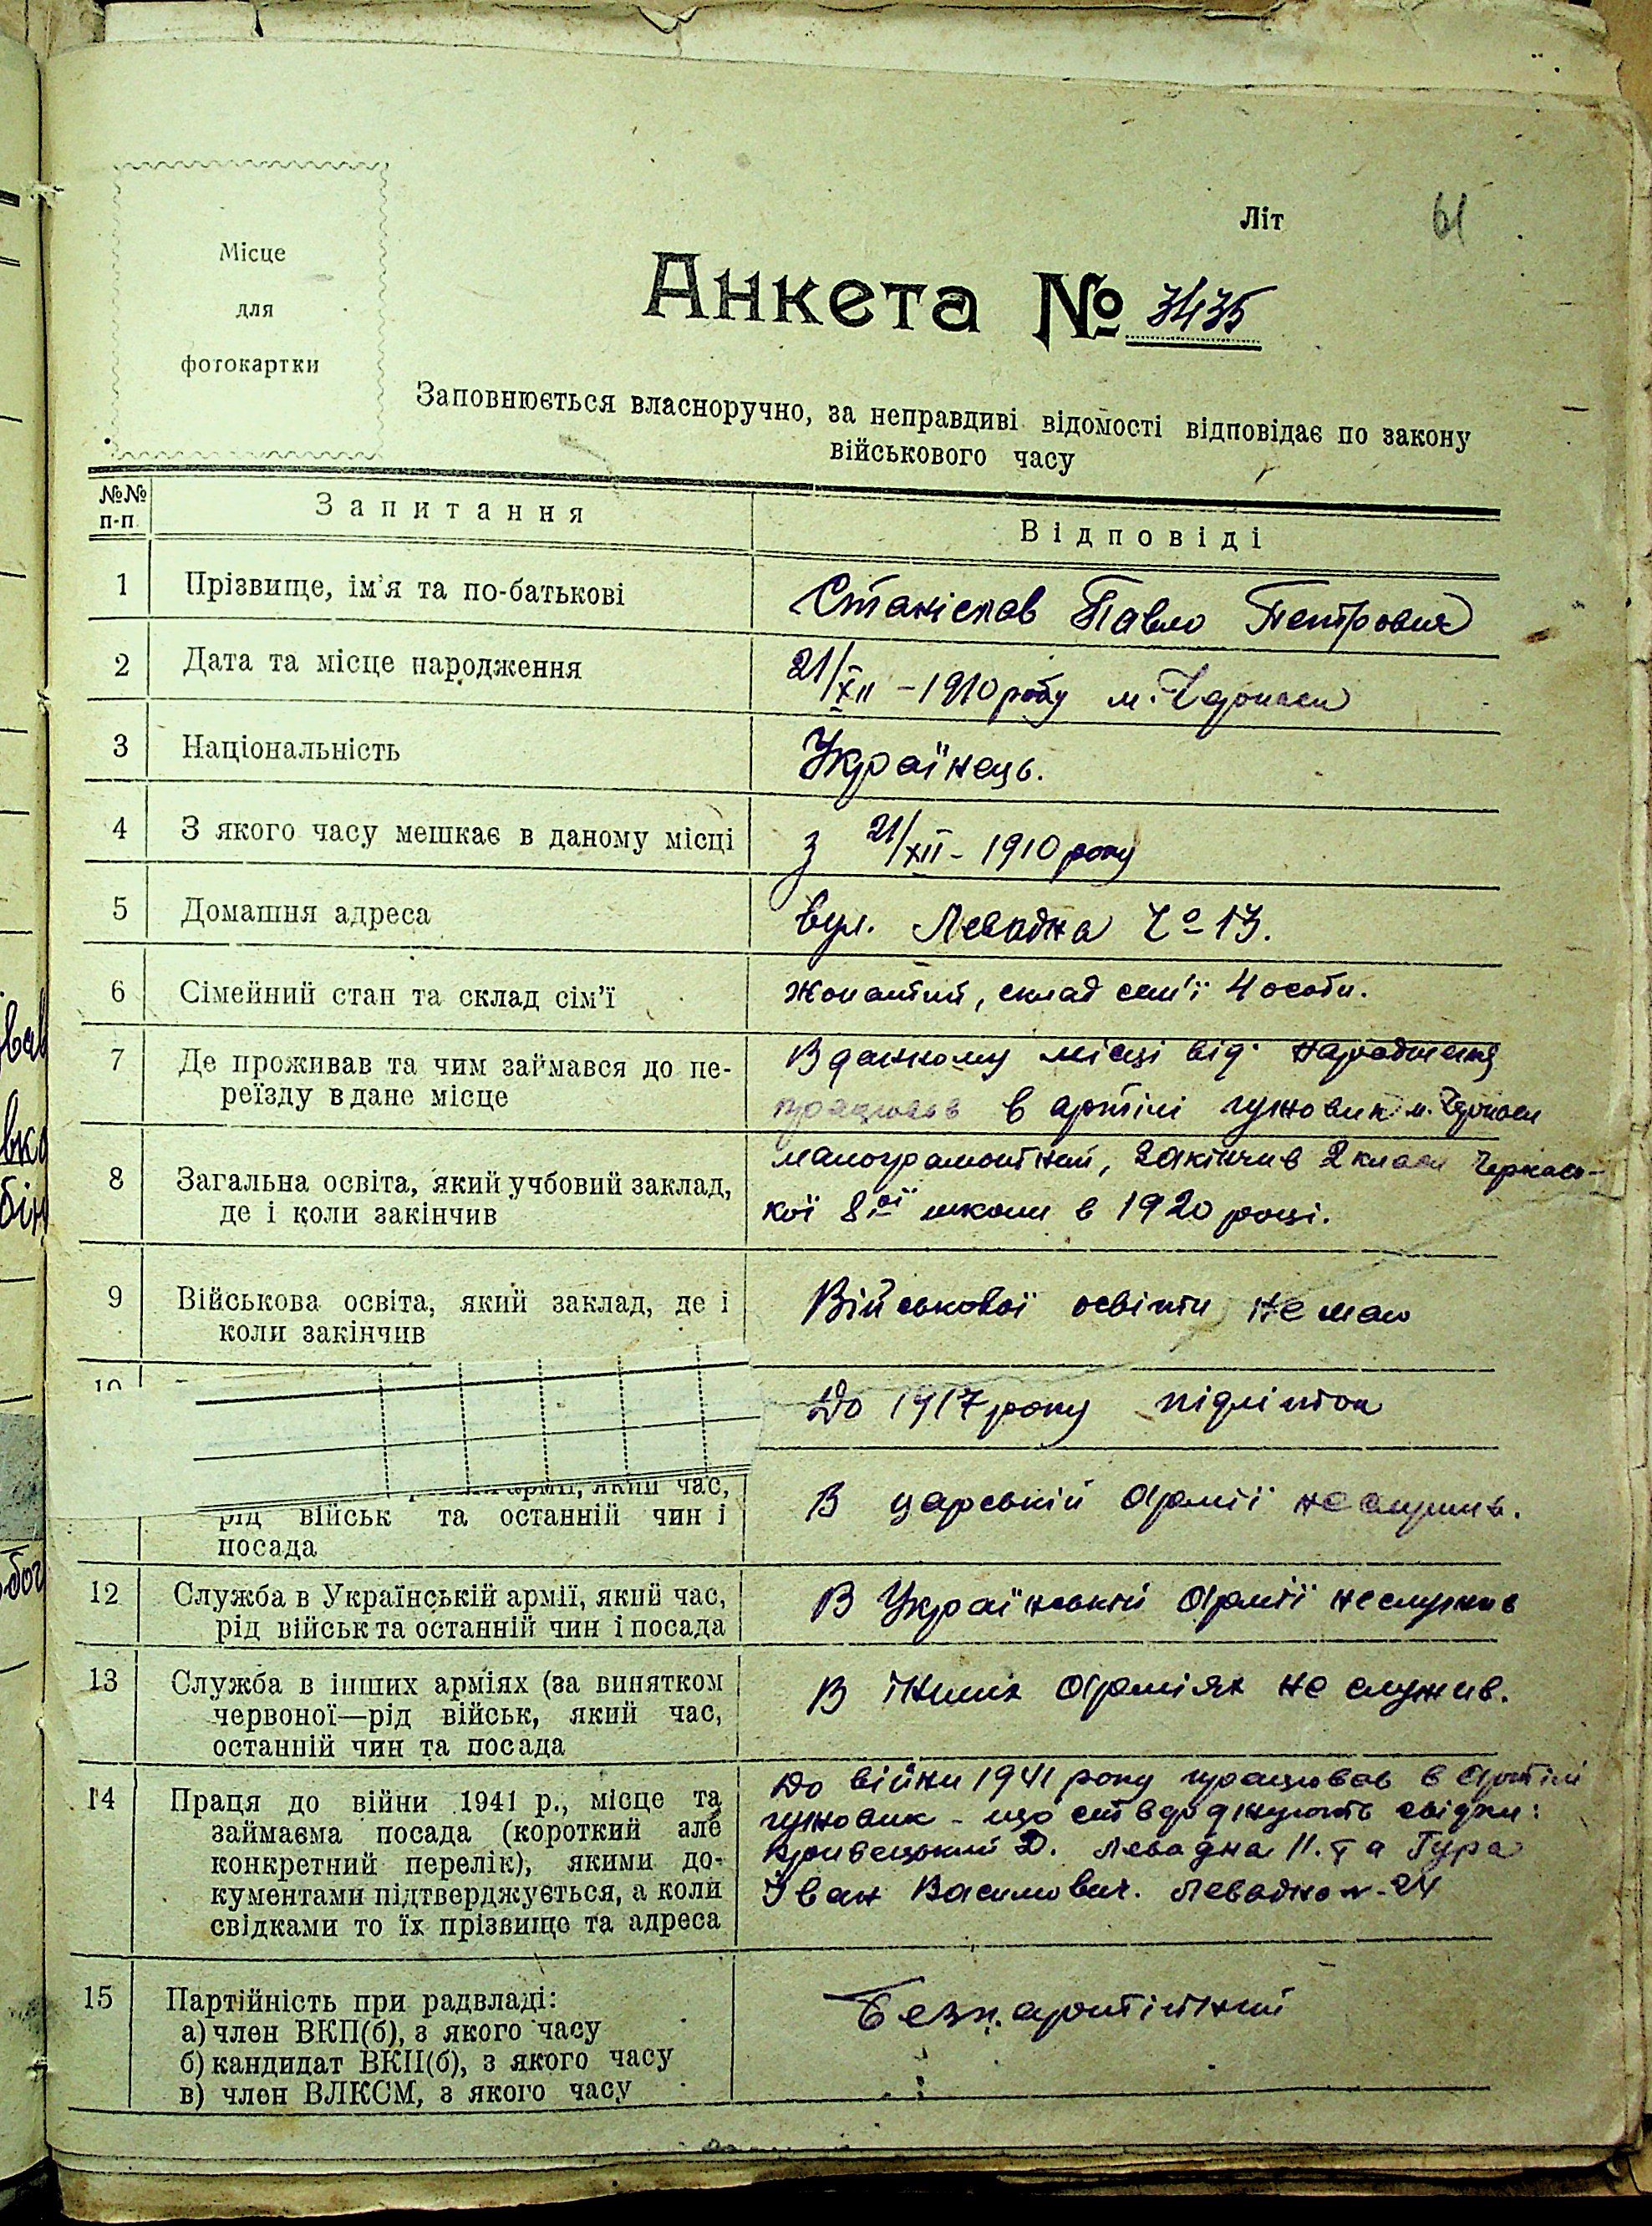 Місце
для
фотокартки
Літ 61
Анкета № 3435
Заповнюється власноручно, за неправдиві відомості відповідає по закону
військового часу
№№ п-п. Запитання Відповіді
1 Прізвище, ім'я та по-батькові Станіслав Павло Петрович
2 Дата та місце народження 21/XII - 1910 року м. Черкаси
3 Національність Українець.
4 З якого часу мешкає в даному місці з 21/XII - 1910 року
5 Домашня адреса вул. Левадна Ч° 13.
6 Сімейний стан та склад сім'ї жонатий, склад сем'ї 4 особи.
7 Де проживав та чим займався до пе- В данному місці від народження
реїзду в дане місце працював в артілі гужовик м. Черкаси
8 Загальна освіта, який учбовий заклад, малограмотний, закінчив 2 класи Черкась-
де і коли закінчив кої 8ої школи в 1920 році.
9 Військова освіта, який заклад, де і Військової освіти не маю
коли закінчив
10 До 1917 року підліток
армії, який час,
рід військ та останній чин і В царській армії не служив.
посада
12 Служба в Українській армії, який час, В Українській армії не служив
рід військ та останній чин і посада
13 Служба в інших арміях (за винятком В інших арміях не служив.
червоної—рід військ, який час,
останній чин та посада
14 Праця до війни 1941 р., місце та До війни 1941 року працював в артілі
займаєма посада (короткий але гужовик - що ствержують свідки:
конкретний перелік), якими до- Кривецький Д. Левадна 11. та Гура
кументами підтверджується, а коли Іван Василович. Левадна №-24
свідками то їх прізвище та адреса
15 Партійність при радвладі: Безпартійний
а) член ВКП(б), з якого часу
б) кандидат ВКП(б), з якого часу
в) член ВЛКСМ, з якого часу